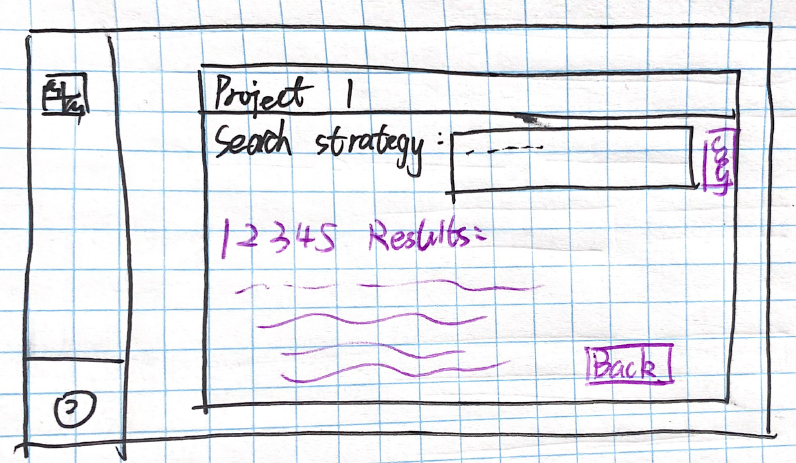 Project 1
Search strategy:
12345 Results:
Back
?